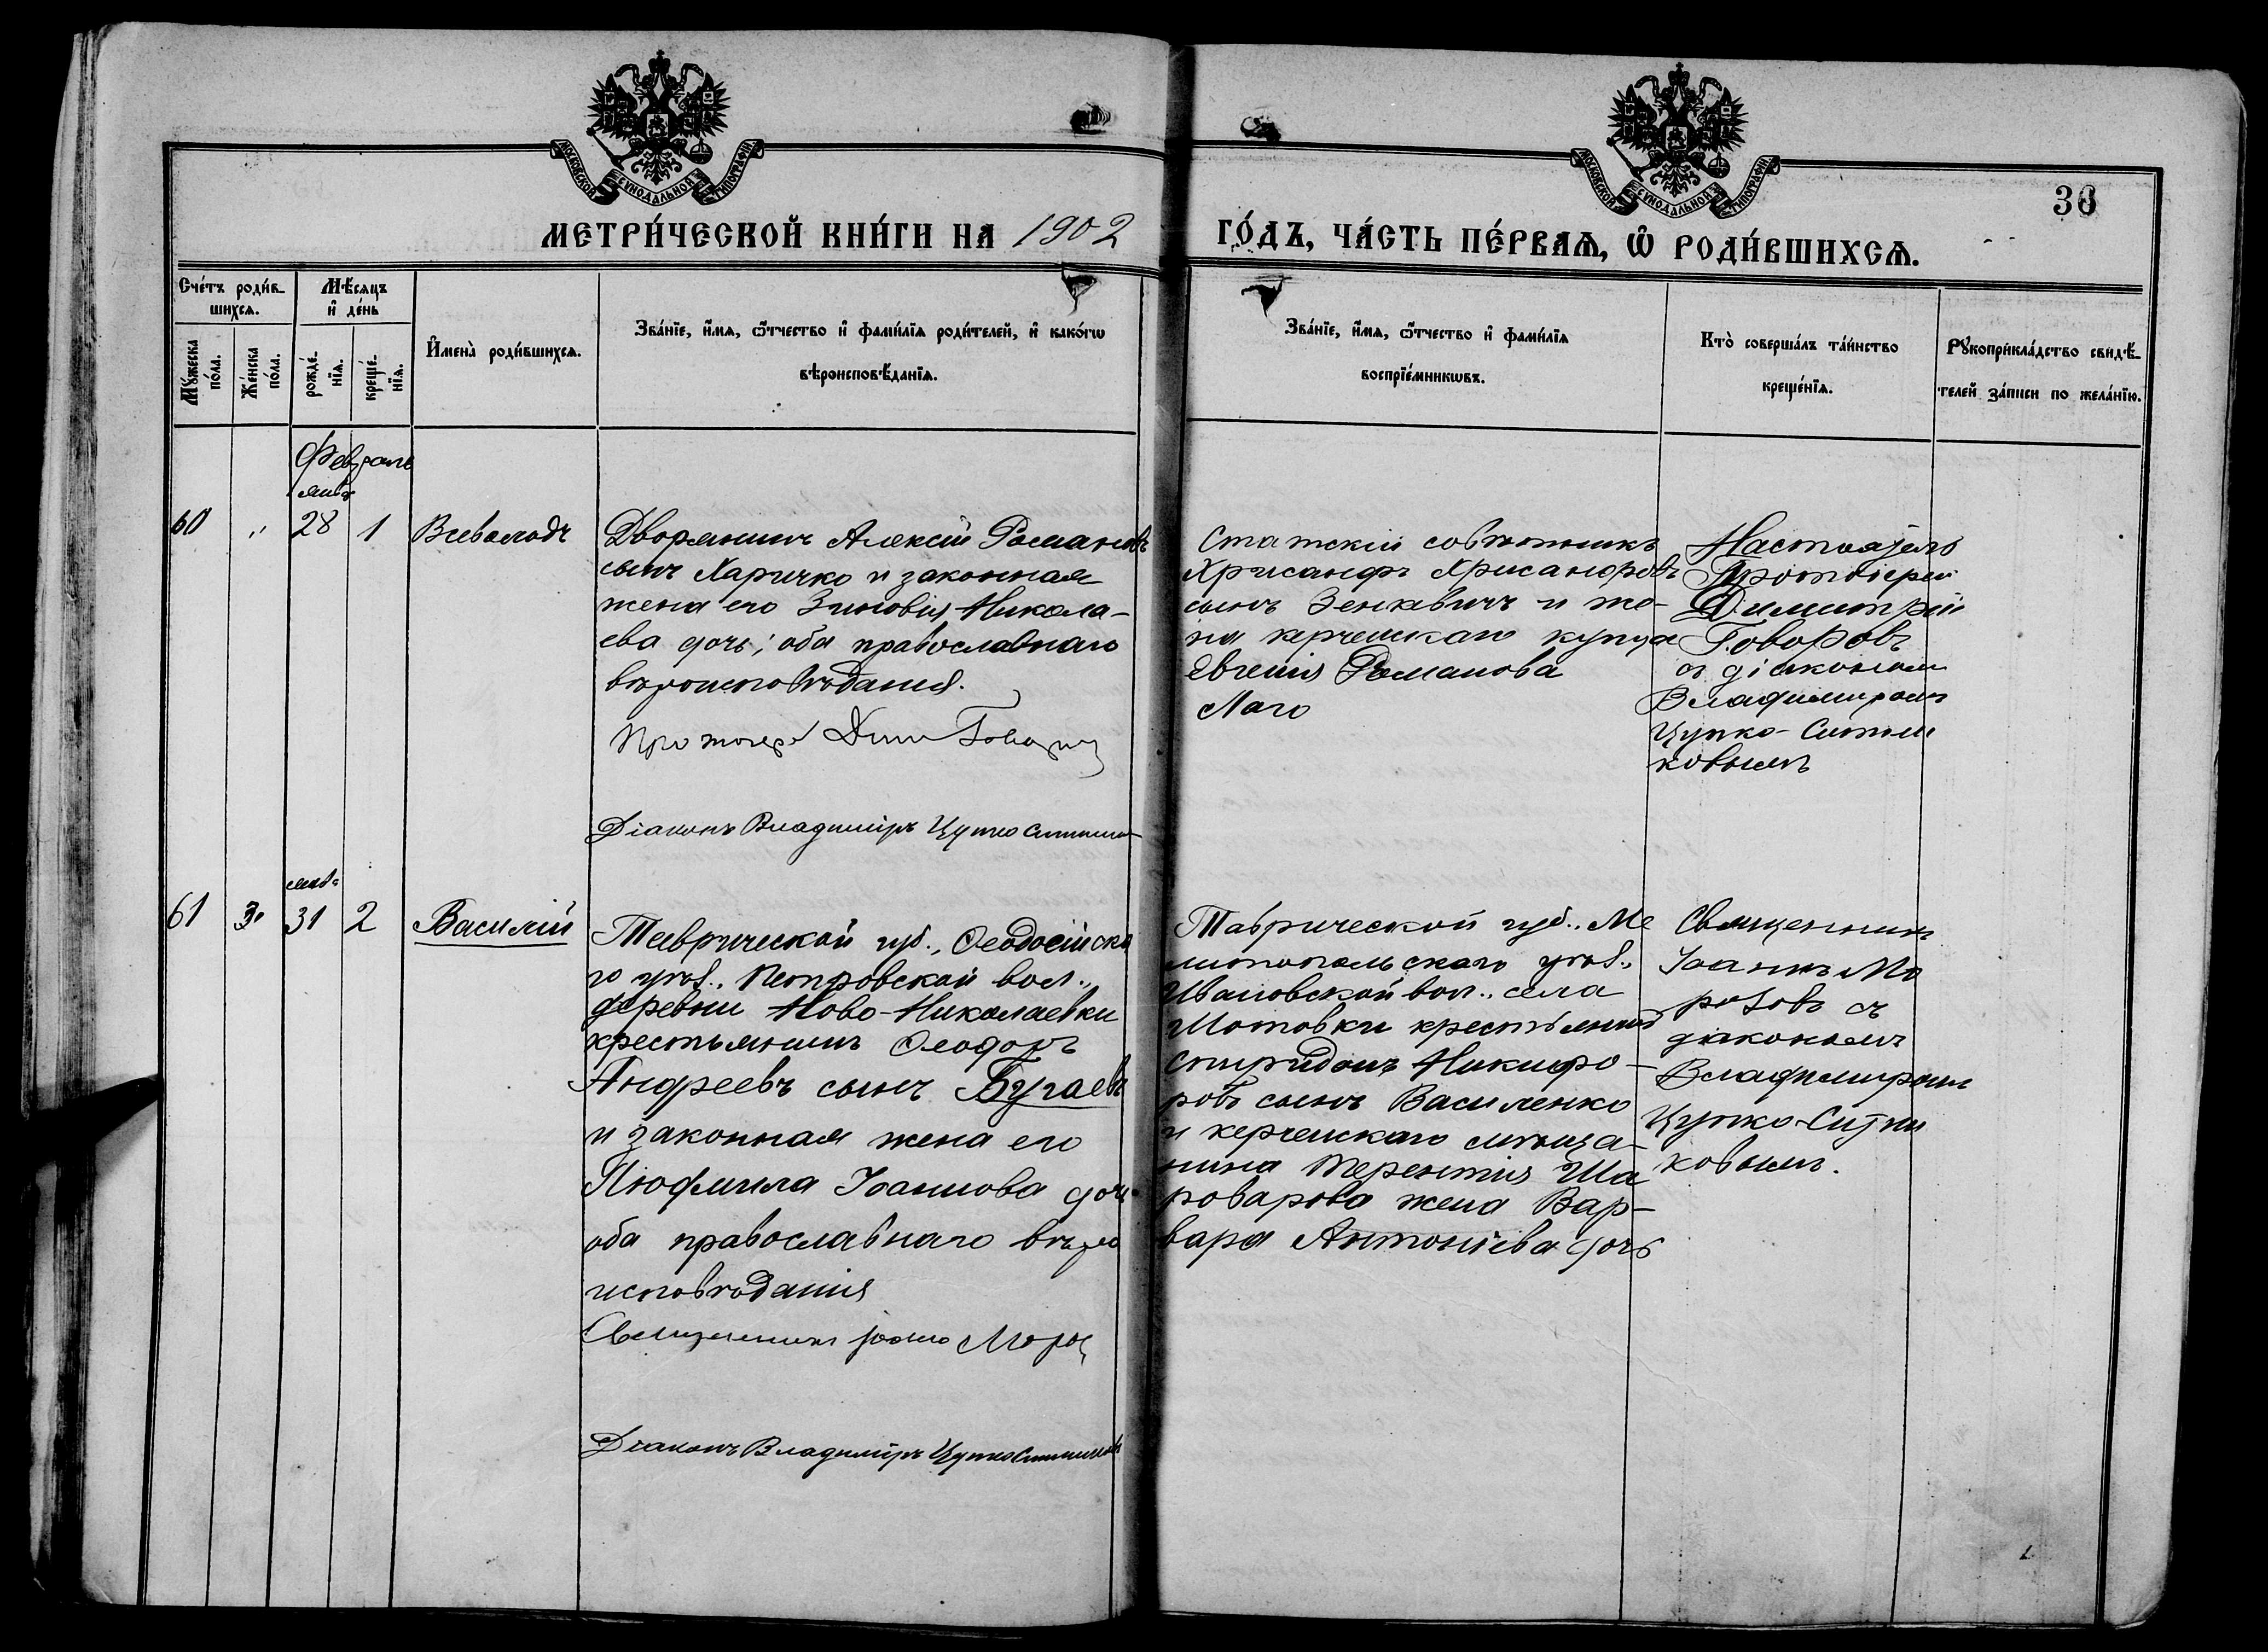 МОСКОВСКОЙ СѴНОДАЛЬНОЙ ТИПОГРАФІИ
МОСКОВСКОЙ СѴНОДАЛЬНОЙ ТИПОГРАФІИ
36
МЕТРИ́ЧЕСКОЙ КНИ́ГИ НА 1902
ГО́ДЪ, ЧА́СТЬ ПЕ́РВАѦ, Ѡ҆ РОДИ́ВШИХСѦ.
Сче́тъ роди́в-
шихсѧ.
Мѣ́сяцъ
и҆ де́нь
Мꙋ́жеска
по́ла.
Же́нска
по́ла.
рожде́-
нїѧ.
креще́-
нїѧ.
И҆мена̀ роди́вшихсѧ.
Зва́нїе, и҆́мѧ, ѻ҆́тчество и҆ фами́лїѧ роди́телей, и҆ како́гѡ
вѣроисповѣ́данїѧ.
Зва́нїе, и҆́мѧ, ѻ҆́тчество и҆ фами́лїѧ
воспрїе́мникѡвъ.
Кто̀ соверша́лъ та́инство
креще́нїѧ.
Рꙋкоприкла́дство свидѣ́-
телей за́писи по жела́нїю.
Февраль
60 " 28 1 Всеволодъ
Дворянинъ Алексій Романовъ
сынъ Харичко и законная
жена его Зиновія Никола-
ева дочь; оба православнаго
вѣроисповѣданія.
Протоіер Дим Говоров
Діаконъ Владиміръ Цупко Ситников
Статскій совѣтникъ
Хрисанфъ Хрисанфовъ
сынъ Зенкевичъ и же-
на керченскаго купца
Евгенія Романова
Лаго
Настоятель
Протоіерей
Димитрій
Говоровъ
съ діакономъ
Владимиромъ
Цупко-Ситни
ковымъ
61 31 2 Василій
Таврической губ., Ѳеодосійска
го уѣз., Петровской вол.,
деревни Ново-Николаевки
крестьянинъ Ѳеодоръ
Андреевъ сынъ Бугаевъ
и законная жена его
Людмила Іоаннова доч
оба православнаго вѣро
исповѣданія
Священникъ Іоанн Мороз
Діаконъ Владиміръ Цупко Ситников
Таврической губ., Ме
литопольскаго уѣз.,
Ивановской вол., села
крестьянинъ
Спиридонъ Никифо-
ровъ сынъ Василенко
и керченскаго мѣща-
нина Терентія Ша
роварова жена Вар-
вара Антоніева дочь
Священникъ
Іоаннъ Мо
розовъ съ
діакономъ
Владимиромъ
Цупко-Ситни
ковымъ.